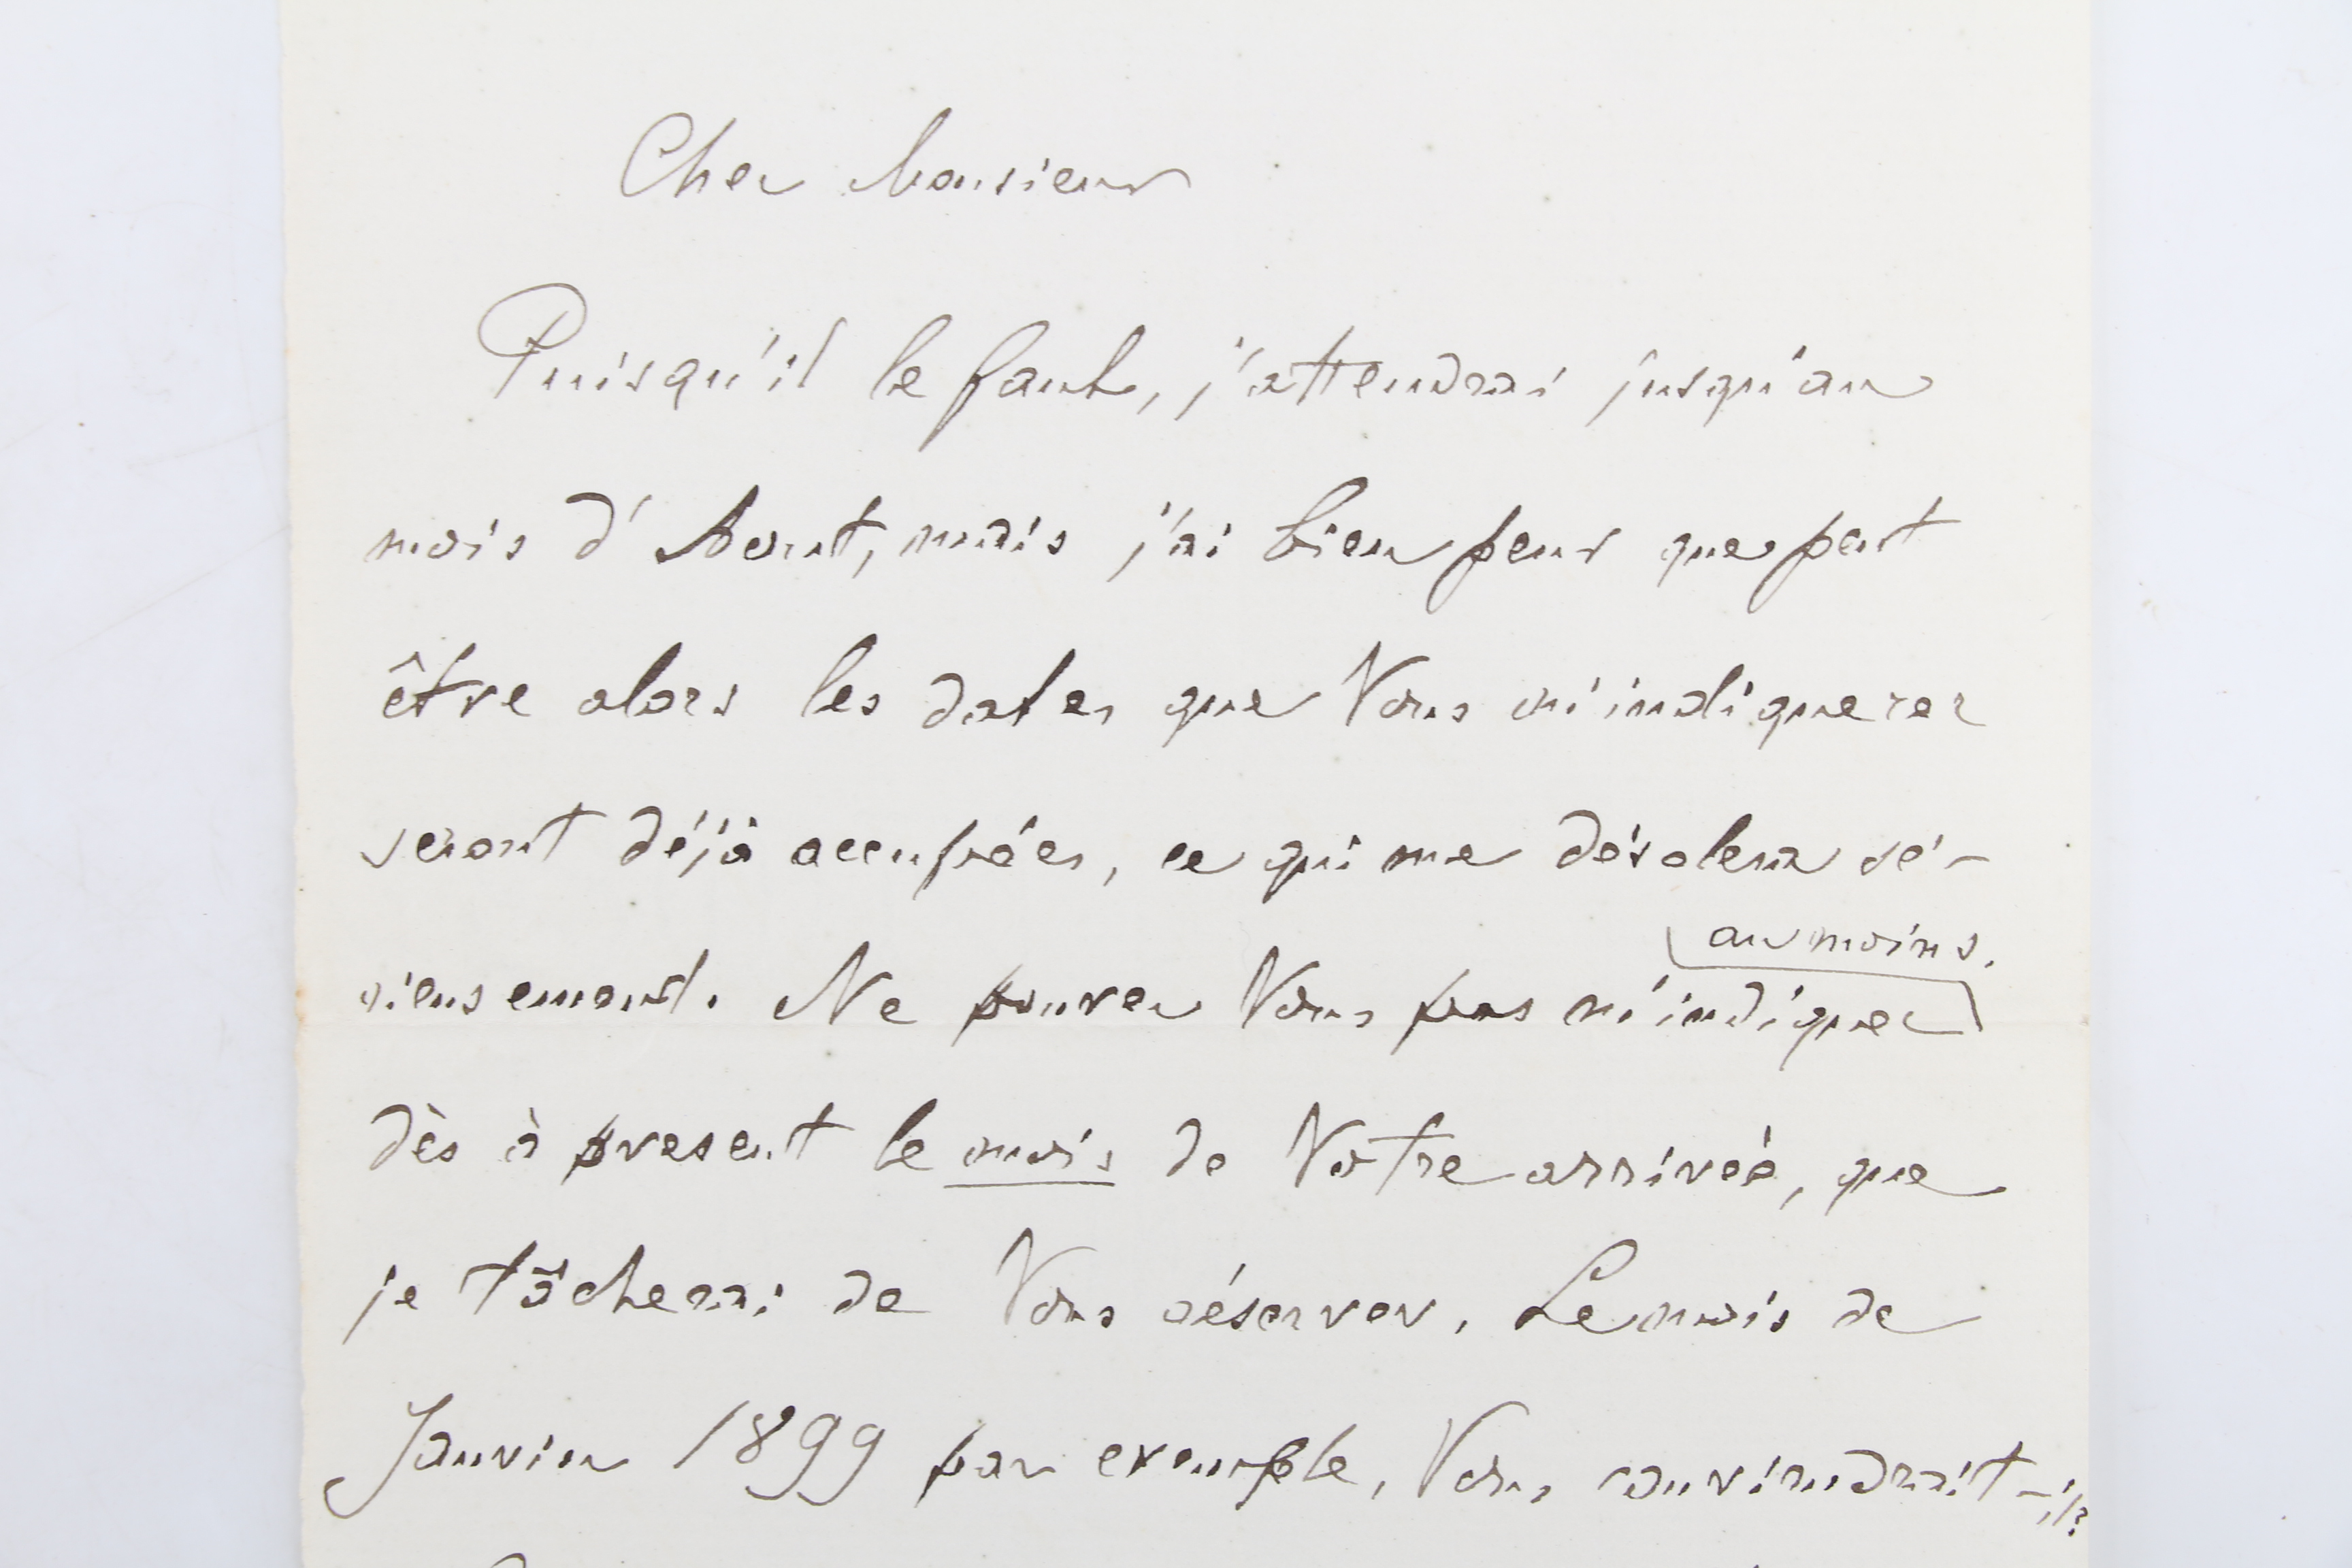 Cher Monsieur
Puisqu'il le faut, j'attendrai jusqu'au
mois d'Aout, mais j'ai bien peur que peut
être alors les dates que Vous m'indiquerez
seront déjà occupées, ce qui me désolera sé-
rieusement. Ne pouvez Vous pas m'indiquer
au moins,
dès à present le mois de Votre arrivée, que
je tâcherai de Vous réserver. Le mois de
Janvier 1899 par exemple, Vous conviendrait-il?